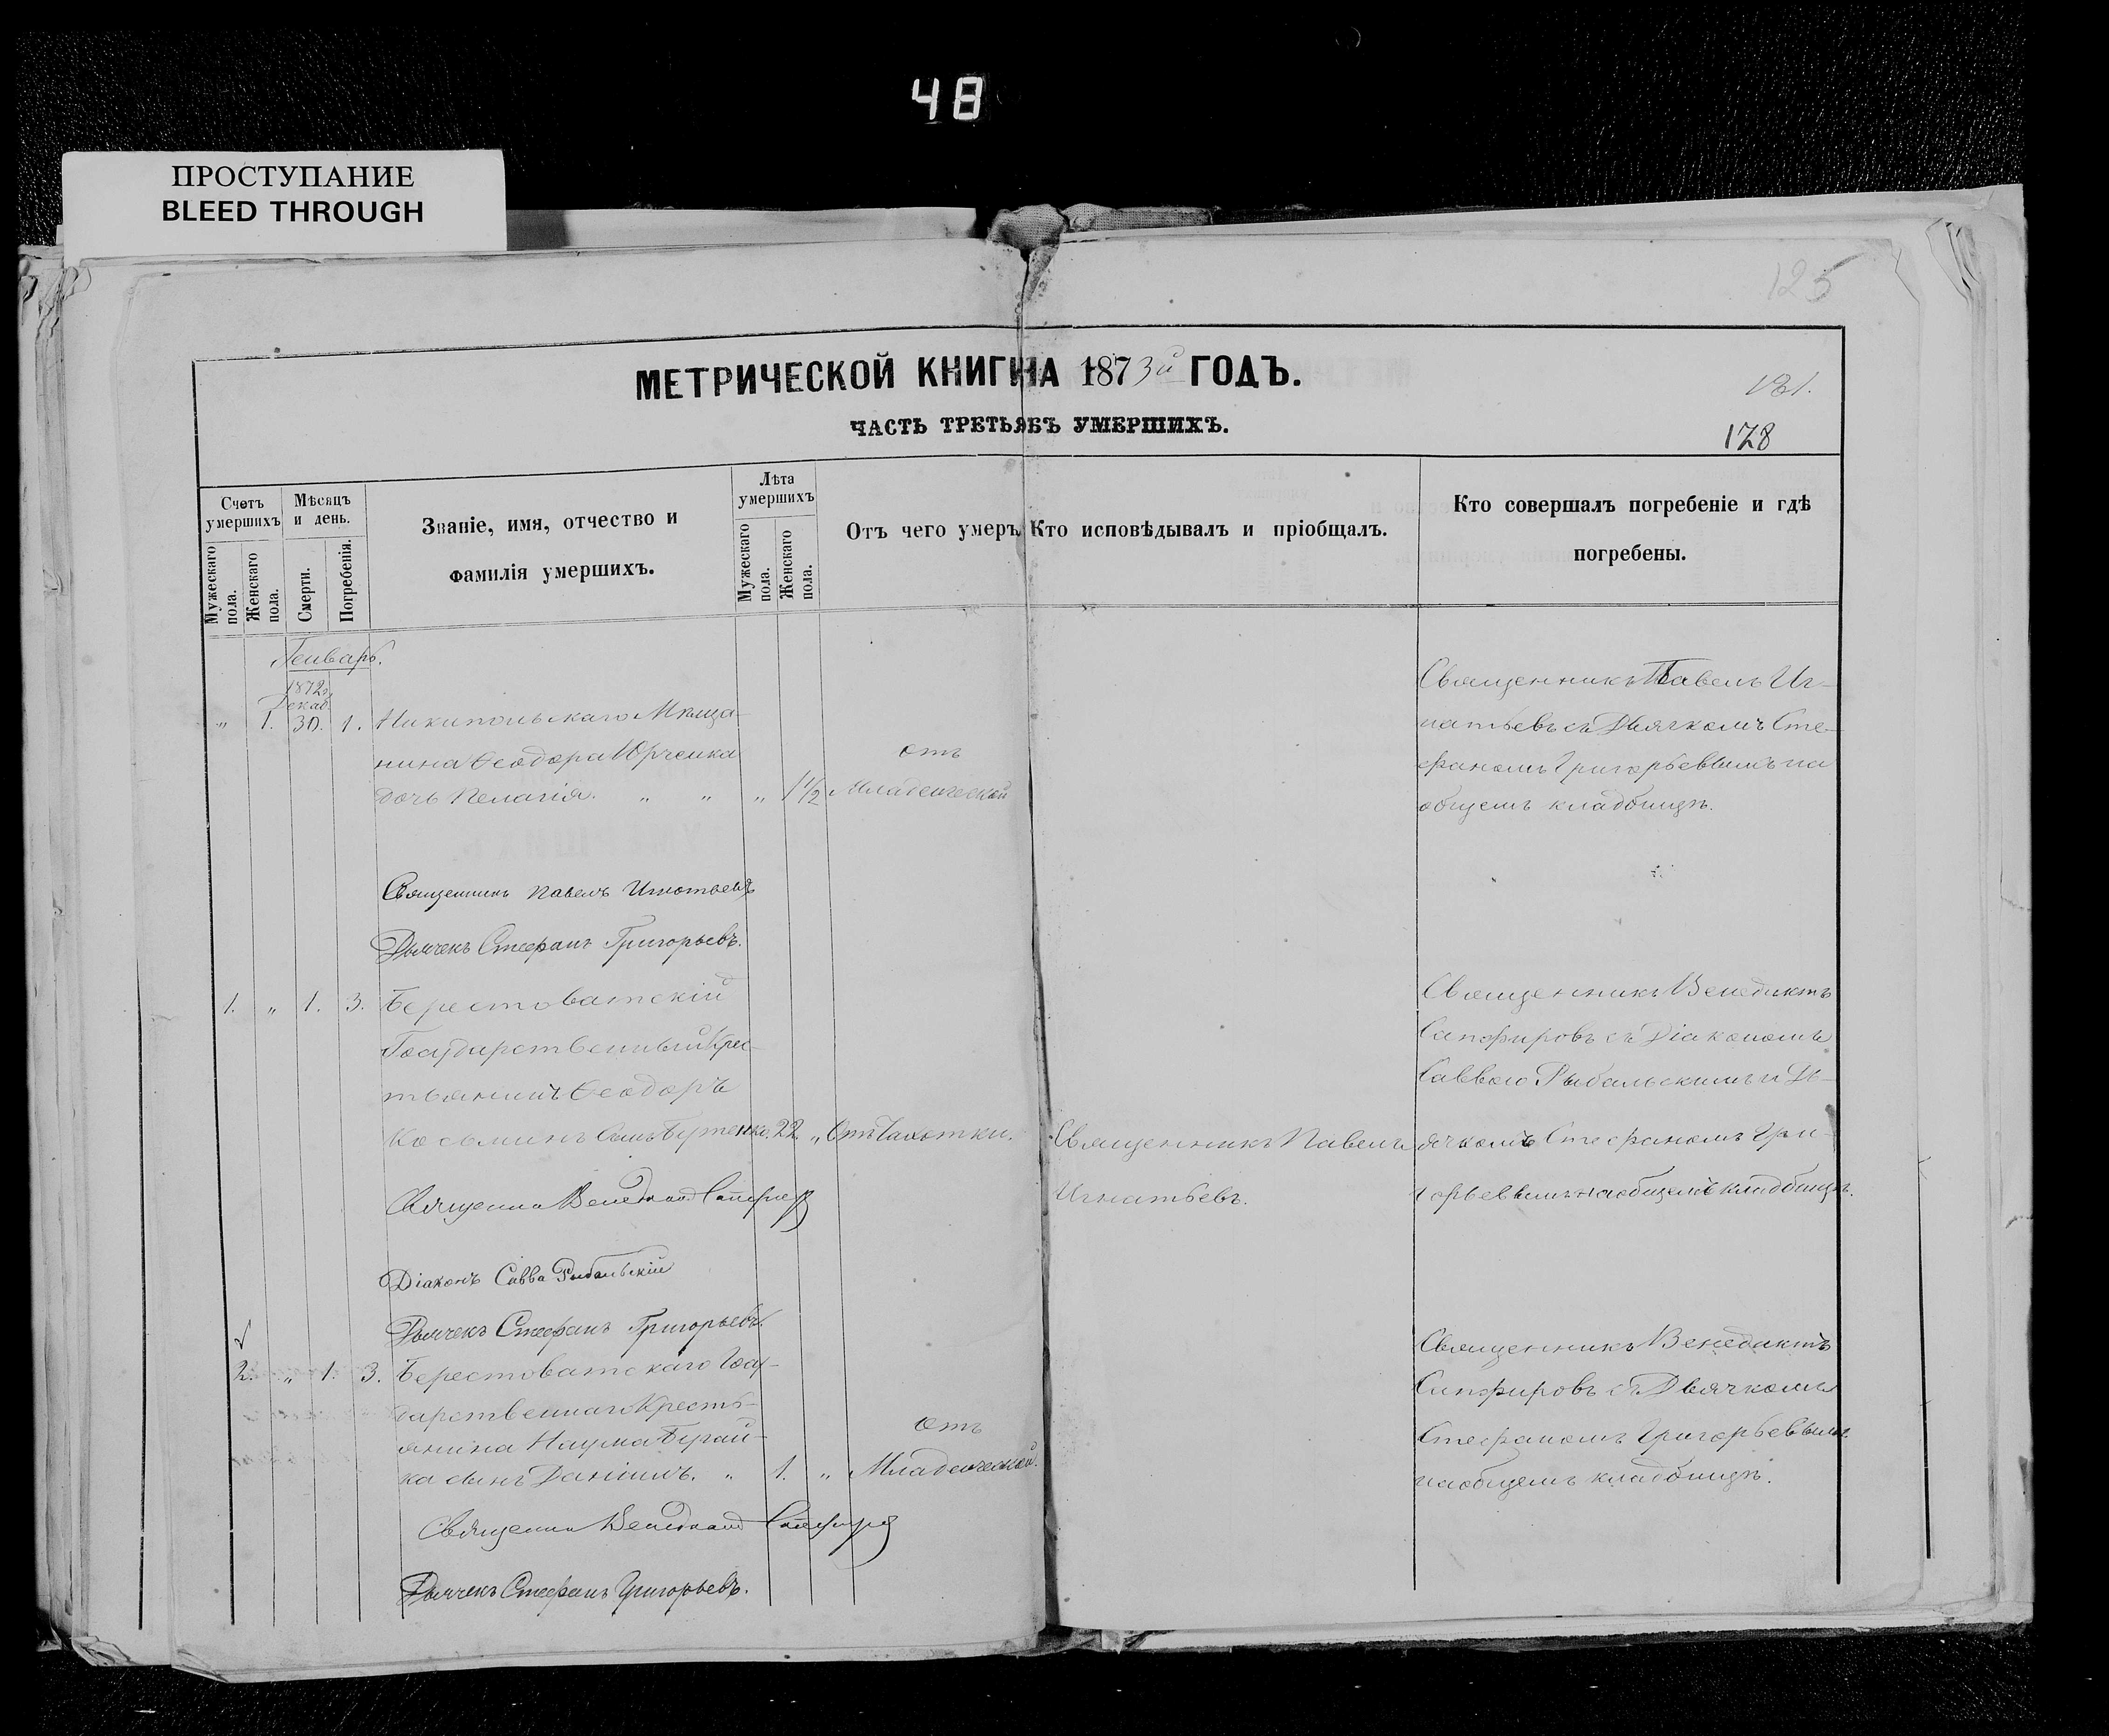 48
ПРОСТУПАНИЕ
BLEED THROUGH
125
МЕТРИЧЕСКОЙ КНИГИ НА 1873й ГОДЪ.
181.
ЧАСТЬ ТРЕТЬЯ О УМЕРШИХЪ.
178
Счетъ умершихъ
Мужескаго пола.
Женскаго пола.
Мѣсяцъ и день.
Смерти.
Погребенія.
Званіе, имя, отчество и
фамилія умершихъ.
Лѣта умершихъ
Мужескаго пола.
Женскаго пола.
Отъ чего умеръ.
Кто исповѣдывалъ и пріобщалъ.
Кто совершалъ погребеніе и гдѣ
погребены.
Генварь.
1872г.
Декаб.
„ 1. 30. 1. Никипольскаго Мѣща-
нина Ѳеодора Юрченка
дочь Пелагія. „ „ „ 1 1/2
отъ
Младенческой
Священникъ Павелъ Иг-
натьевъ съ Дьячкомъ Сте-
фаномъ Григорьевымъ на
общемъ кладбищѣ.
Священникъ Павелъ Игнатьевъ
Дьячекъ Стефанъ Григорьевъ.
1. „ 1. 3. Берестоватскій
Государственный Крес-
тьянинъ Ѳеодоръ
Косьминъ Сынъ 22 „ Отъ Чахотки.
Священникъ Павелъ
Игнатьевъ.
Священникъ Венедиктъ
Сапфировъ съ Діакономъ
Саввою Рыбальскимъ и Дь-
ячкомъ Стефаномъ Гри-
горьевымъ на общемъ кладбищѣ.
Священникъ Венедиктъ Сапфировъ
Діаконъ Савва Рыбальскій
Дьячекъ Стефанъ Григорьевъ.
2. „ 1. 3. Берестоватскаго Госу-
дарственнаго Кресть-
янина Наума Бугай-
ка сынъ Даніилъ. „ 1. „
отъ
Младенческой.
Священникъ Венедиктъ
Сапфировъ съ Дьячкомъ
Стефаномъ Григорьевымъ
на общемъ кладбищѣ.
Священникъ Венедиктъ Сапфировъ
Дьячекъ Стефанъ Григорьевъ.